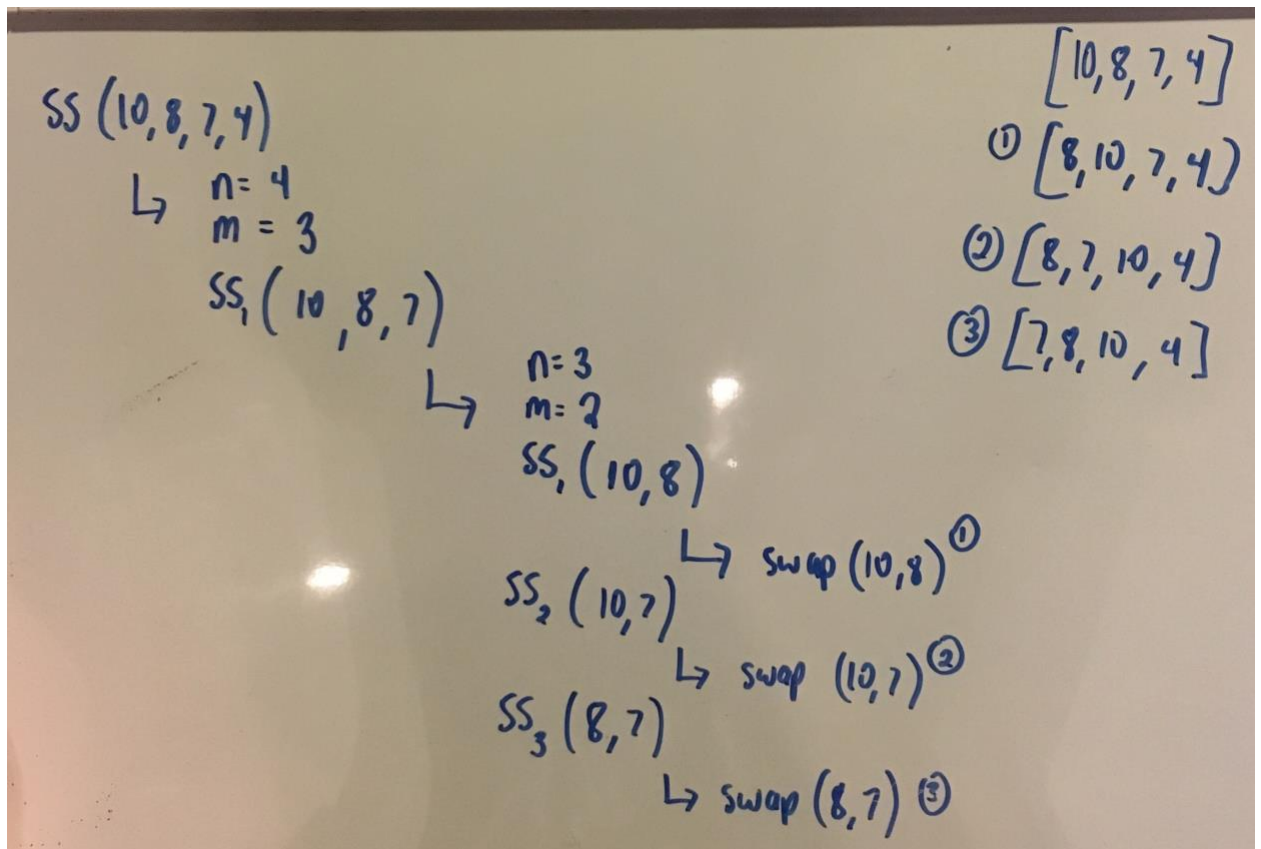 SS (10,8,7,4)
↳ n= 4
m = 3
SS₁ (10,8,7)
↳ n= 3
m= 2
SS₁ (10,8)
↳ swap (10,8) ①
SS₂ (10,7)
↳ swap (10,7) ②
SS₃ (8,7)
↳ swap (8,7) ③
[10,8,7,4]
① [8,10,7,4]
② [8,7,10,4]
③ [7,8,10,4]